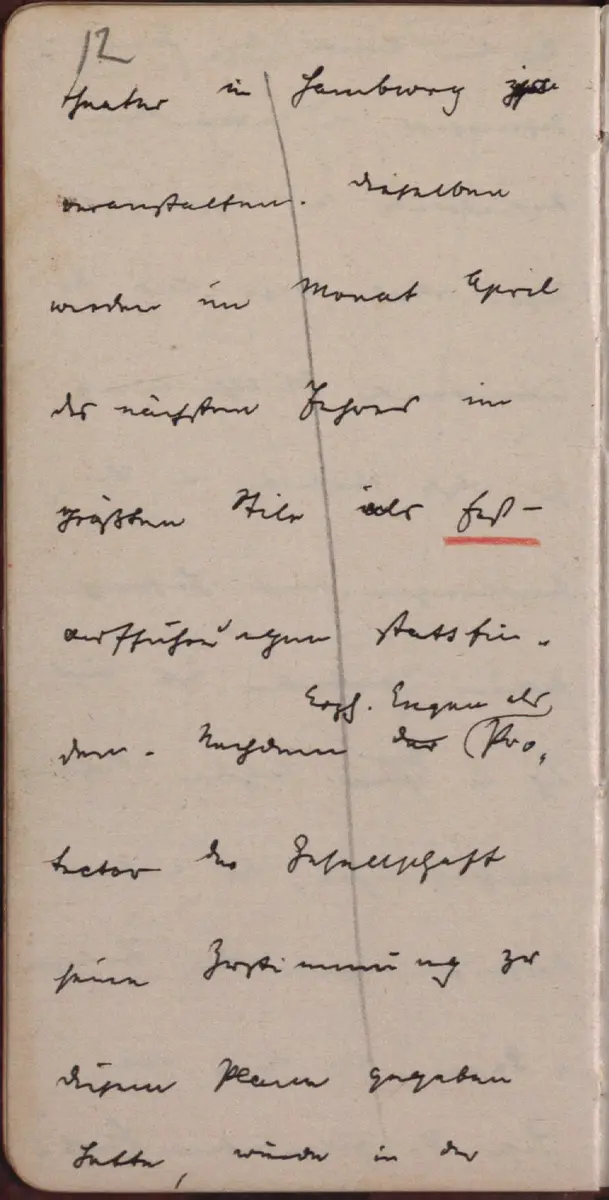 12
theater in Hamburg zu
veranstalten. Dieselben
werden im Monat April
des nächsten Jahres im
größten Stile als Fest-
aufführungen stattfin-
den. Nachdem der Erzh. Eugen als Pro-
tector der Gesellschaft
seine Zustimmung zu
diesem Plane gegeben
hatte, wurde in der